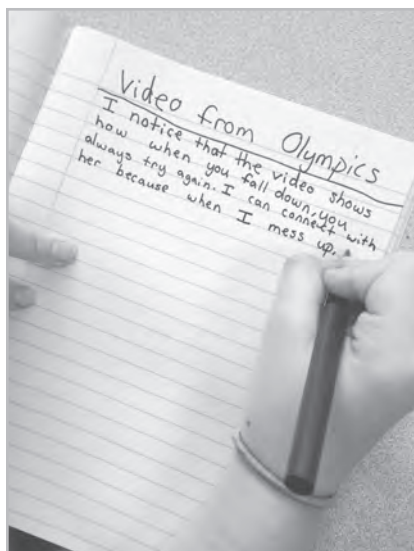 Video from Olympics
I notice that the video shows
how when you fall down, you
always try again. I can connect with
her because when I mess up,